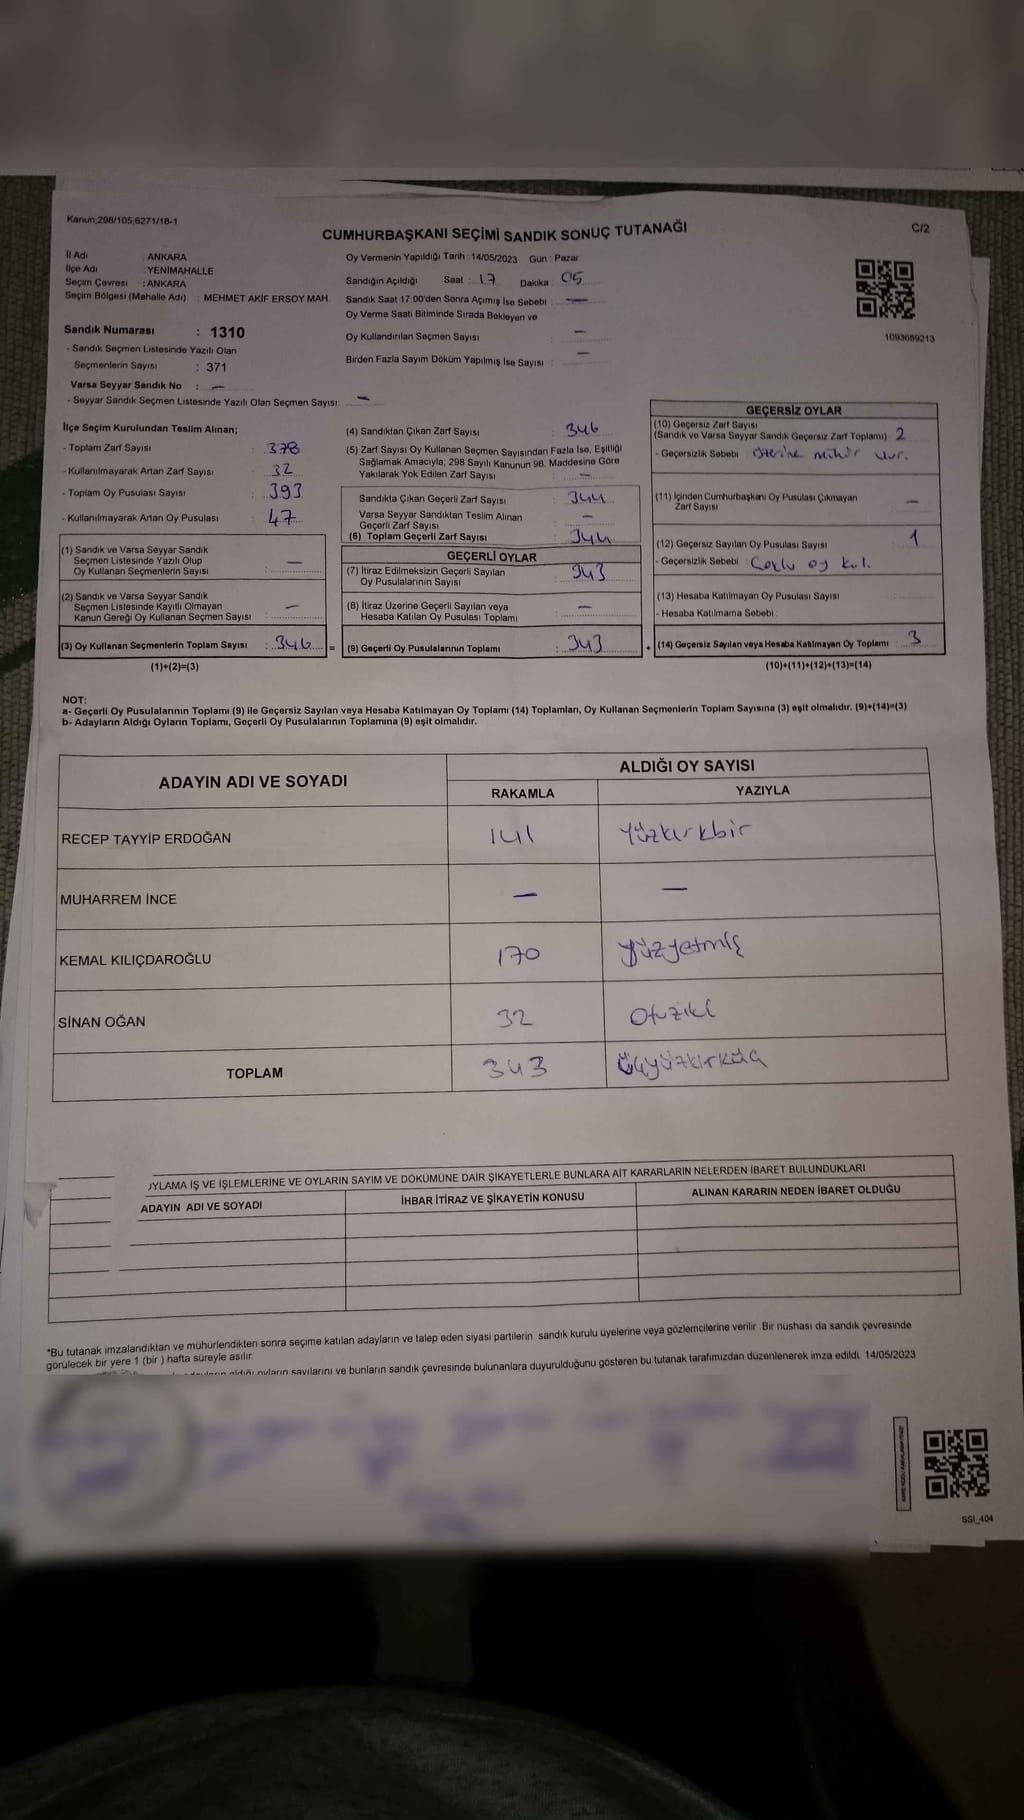 Kanun;298/105,6271/18-1
CUMHURBAŞKANI SEÇİMİ SANDIK SONUÇ TUTANAĞI
C/2
İl Adı : ANKARA
İlçe Adı : YENİMAHALLE
Seçim Çevresi : ANKARA
Seçim Bölgesi (Mahalle Adı) : MEHMET AKİF ERSOY MAH.
Sandık Numarası : 1310
- Sandık Seçmen Listesinde Yazılı Olan
Seçmenlerin Sayısı : 371
Varsa Seyyar Sandık No : —
- Seyyar Sandık Seçmen Listesinde Yazılı Olan Seçmen Sayısı: —
Oy Vermenin Yapıldığı Tarih : 14/05/2023 Gün : Pazar
Sandığın Açıldığı Saat : 17 Dakika : 05
Sandık Saat 17.00'den Sonra Açımış İse Sebebi : —
Oy Verme Saati Bitiminde Sırada Bekleyen ve
Oy Kullandırılan Seçmen Sayısı : —
Birden Fazla Sayım Döküm Yapılmış İse Sayısı : —
1093689213
İlçe Seçim Kurulundan Teslim Alınan;
- Toplam Zarf Sayısı : 378
- Kullanılmayarak Artan Zarf Sayısı : 32
- Toplam Oy Pusulası Sayısı : 393
- Kullanılmayarak Artan Oy Pusulası : 47
(1) Sandık ve Varsa Seyyar Sandık
Seçmen Listesinde Yazılı Olup
Oy Kullanan Seçmenlerin Sayısı : —
(2) Sandık ve Varsa Seyyar Sandık
Seçmen Listesinde Kayıtlı Olmayan
Kanun Gereği Oy Kullanan Seçmen Sayısı : —
(3) Oy Kullanan Seçmenlerin Toplam Sayısı : 346 =
(1)+(2)=(3)
(4) Sandıktan Çıkan Zarf Sayısı : 346
(5) Zarf Sayısı Oy Kullanan Seçmen Sayısından Fazla İse, Eşitliği
Sağlamak Amacıyla, 298 Sayılı Kanunun 98. Maddesine Göre
Yakılarak Yok Edilen Zarf Sayısı : —
Sandıkta Çıkan Geçerli Zarf Sayısı : 344
Varsa Seyyar Sandıktan Teslim Alınan
Geçerli Zarf Sayısı : —
(6) Toplam Geçerli Zarf Sayısı : 344
GEÇERLİ OYLAR
(7) İtiraz Edilmeksizin Geçerli Sayılan
Oy Pusulalarının Sayısı : 343
(8) İtiraz Üzerine Geçerli Sayılan veya
Hesaba Katılan Oy Pusulası Toplamı : —
(9) Geçerli Oy Pusulalarının Toplamı : 343 +
GEÇERSİZ OYLAR
(10) Geçersiz Zarf Sayısı
(Sandık ve Varsa Seyyar Sandık Geçersiz Zarf Toplamı) 2
- Geçersizlik Sebebi : üzerine mühür vur.
(11) İçinden Cumhurbaşkanı Oy Pusulası Çıkmayan
Zarf Sayısı : —
(12) Geçersiz Sayılan Oy Pusulası Sayısı : 1
- Geçersizlik Sebebi : Çoklu oy kul.
(13) Hesaba Katılmayan Oy Pusulası Sayısı :
- Hesaba Katılmama Sebebi :
(14) Geçersiz Sayılan veya Hesaba Katılmayan Oy Toplamı : 3
(10)+(11)+(12)+(13)=(14)
NOT:
a- Geçerli Oy Pusulalarının Toplamı (9) ile Geçersiz Sayılan veya Hesaba Katılmayan Oy Toplamı (14) Toplamları, Oy Kullanan Seçmenlerin Toplam Sayısına (3) eşit olmalıdır. (9)+(14)=(3)
b- Adayların Aldığı Oyların Toplamı, Geçerli Oy Pusulalarının Toplamına (9) eşit olmalıdır.
ADAYIN ADI VE SOYADI
ALDIĞI OY SAYISI
RAKAMLA YAZIYLA
RECEP TAYYİP ERDOĞAN 141 Yüzkırkbir
MUHARREM İNCE — —
KEMAL KILIÇDAROĞLU 170 yüzyetmiş
SİNAN OĞAN 32 Otuziki
TOPLAM 343 üçyüzkırküç
OYLAMA İŞ VE İŞLEMLERİNE VE OYLARIN SAYIM VE DÖKÜMÜNE DAİR ŞİKAYETLERLE BUNLARA AİT KARARLARIN NELERDEN İBARET BULUNDUKLARI
ADAYIN ADI VE SOYADI İHBAR İTİRAZ VE ŞİKAYETİN KONUSU ALINAN KARARIN NEDEN İBARET OLDUĞU
*Bu tutanak imzalandıktan ve mühürlendikten sonra seçime katılan adayların ve talep eden siyasi partilerin sandık kurulu üyelerine veya gözlemcilerine verilir. Bir nüshası da sandık çevresinde
görülecek bir yere 1 (bir ) hafta süreyle asılır.
oyların sayılarını ve bunların sandık çevresinde bulunanlara duyurulduğunu gösteren bu tutanak tarafımızdan düzenlenerek imza edildi. 14/05/2023
SSI_404